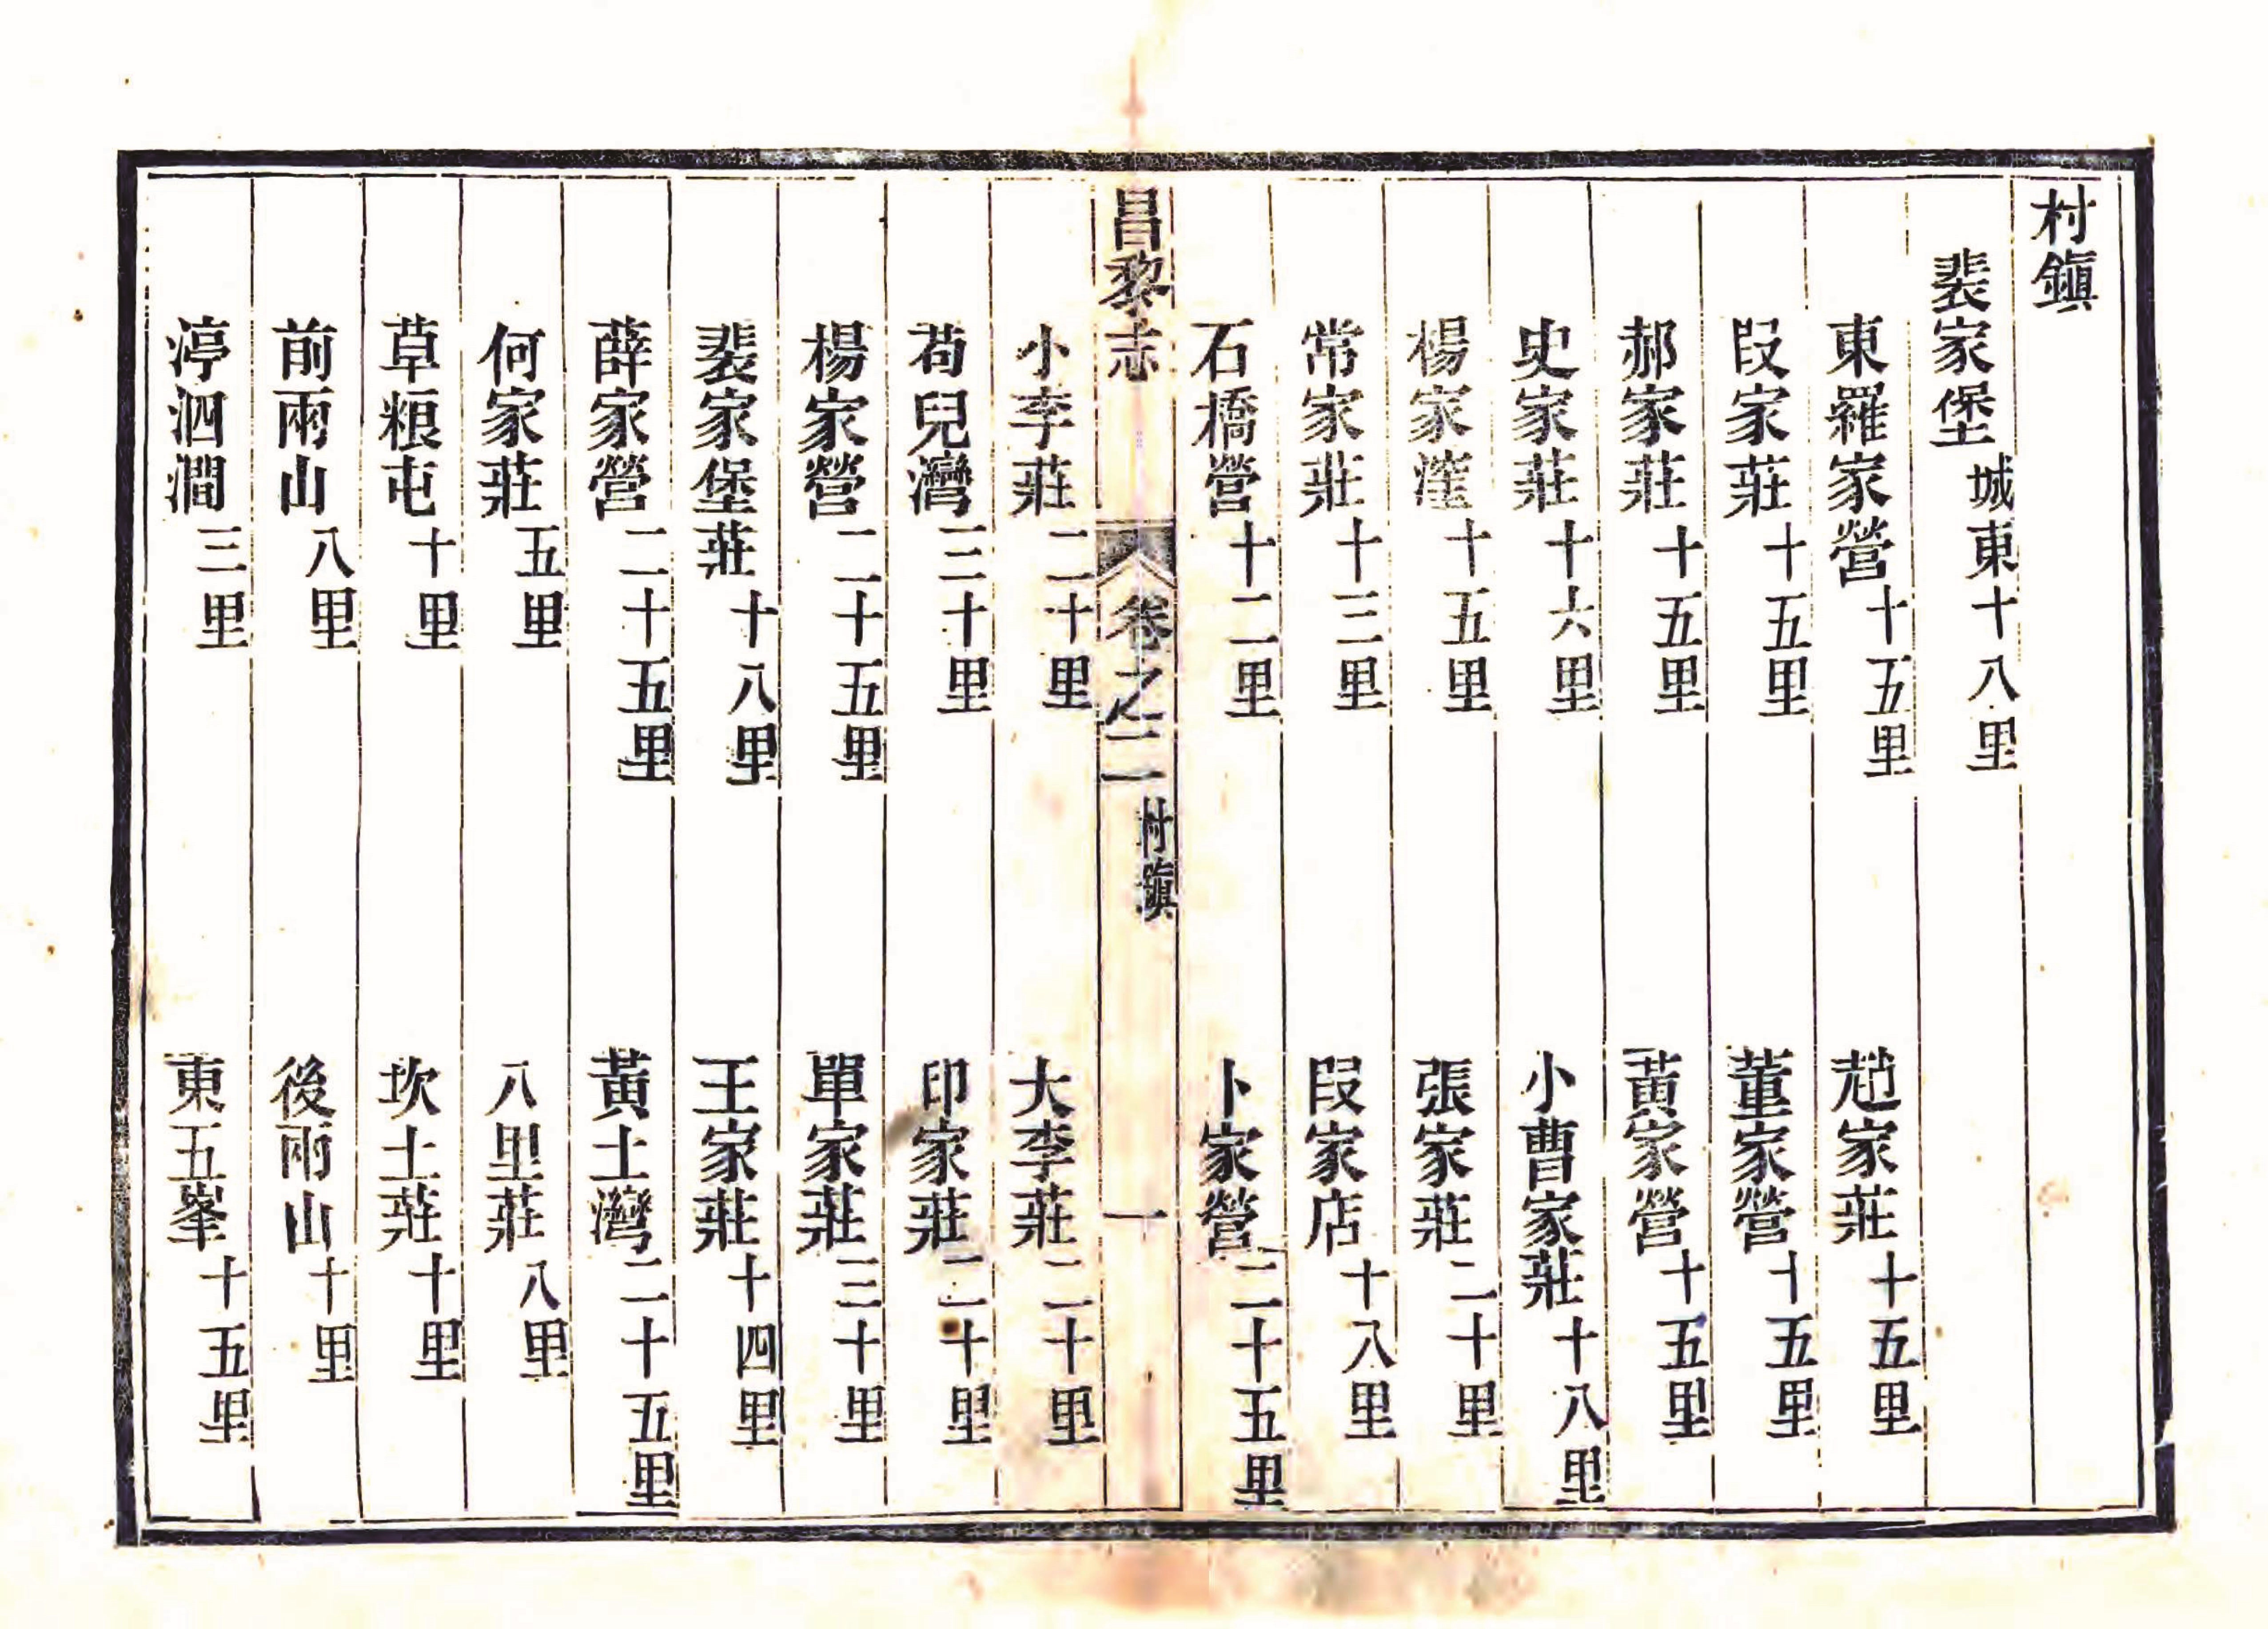 村鎮
裴家堡 城東十八里
東羅家營 十五里 趙家莊 十五里
段家莊 十五里 董家營 十五里
郝家莊 十五里 黃家營 十五里
史家莊 十六里 小曹家莊 十八里
楊家漥 十五里 張家莊 二十里
常家莊 十三里 段家店 十八里
石橋營 十二里 卜家營 二十五里
昌黎志 卷之二 村鎮 一
小李莊 二十里 大李莊 二十里
荀兒灣 三十里 印家莊 二十里
楊家營 二十五里 單家莊 三十里
裴家堡莊 十八里 王家莊 十四里
薛家營 二十五里 黃土灣 二十五里
何家莊 五里 八里莊 八里
草粮屯 十里 坎土莊 十里
前兩山 八里 後兩山 十里
渟泗澗 三里 東五峯 十五里